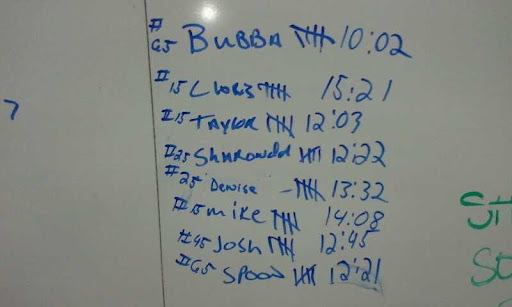 #65 BUBBA 卌 10:02
#15 CHRIS 卌 15:21
#15 TAYLOR 卌 12:03
#25 SHAROWDD 卌 12:22
#25 Denise - 卌 13:32
#15 mike 卌 14:08
#45 JOSH 卌 12:45
#65 SPOON 卌 12:21